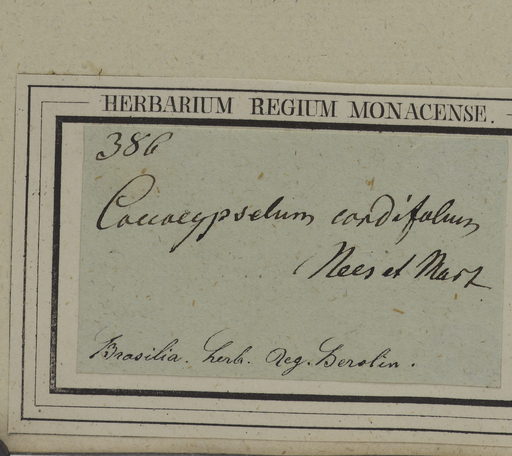 HERBARIUM REGIUM MONACENSE.
386
Coccocypselum cordifolium
Nees et Mart
Brasilia. herb. Reg. Berolin.